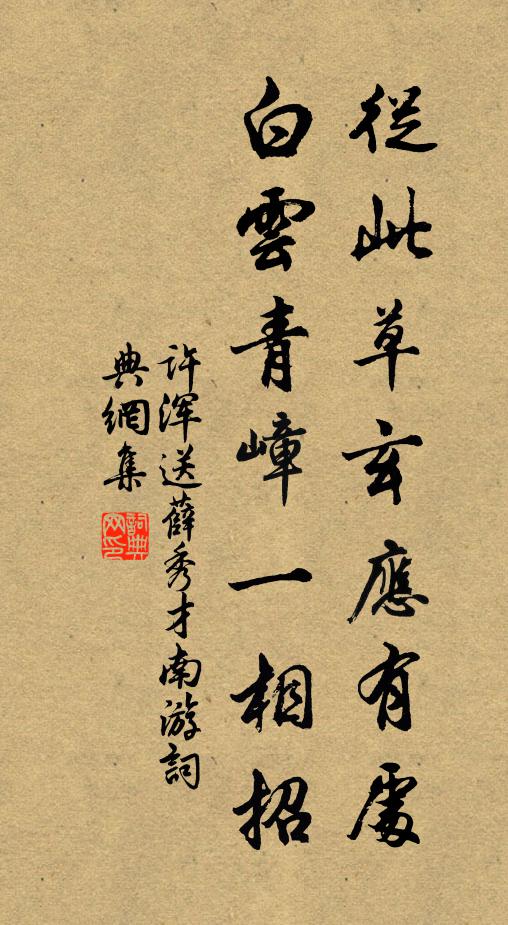 從此草玄應有處
白雲青嶂一相招
許渾送薛秀才南游詞
典網集
詞典
网印